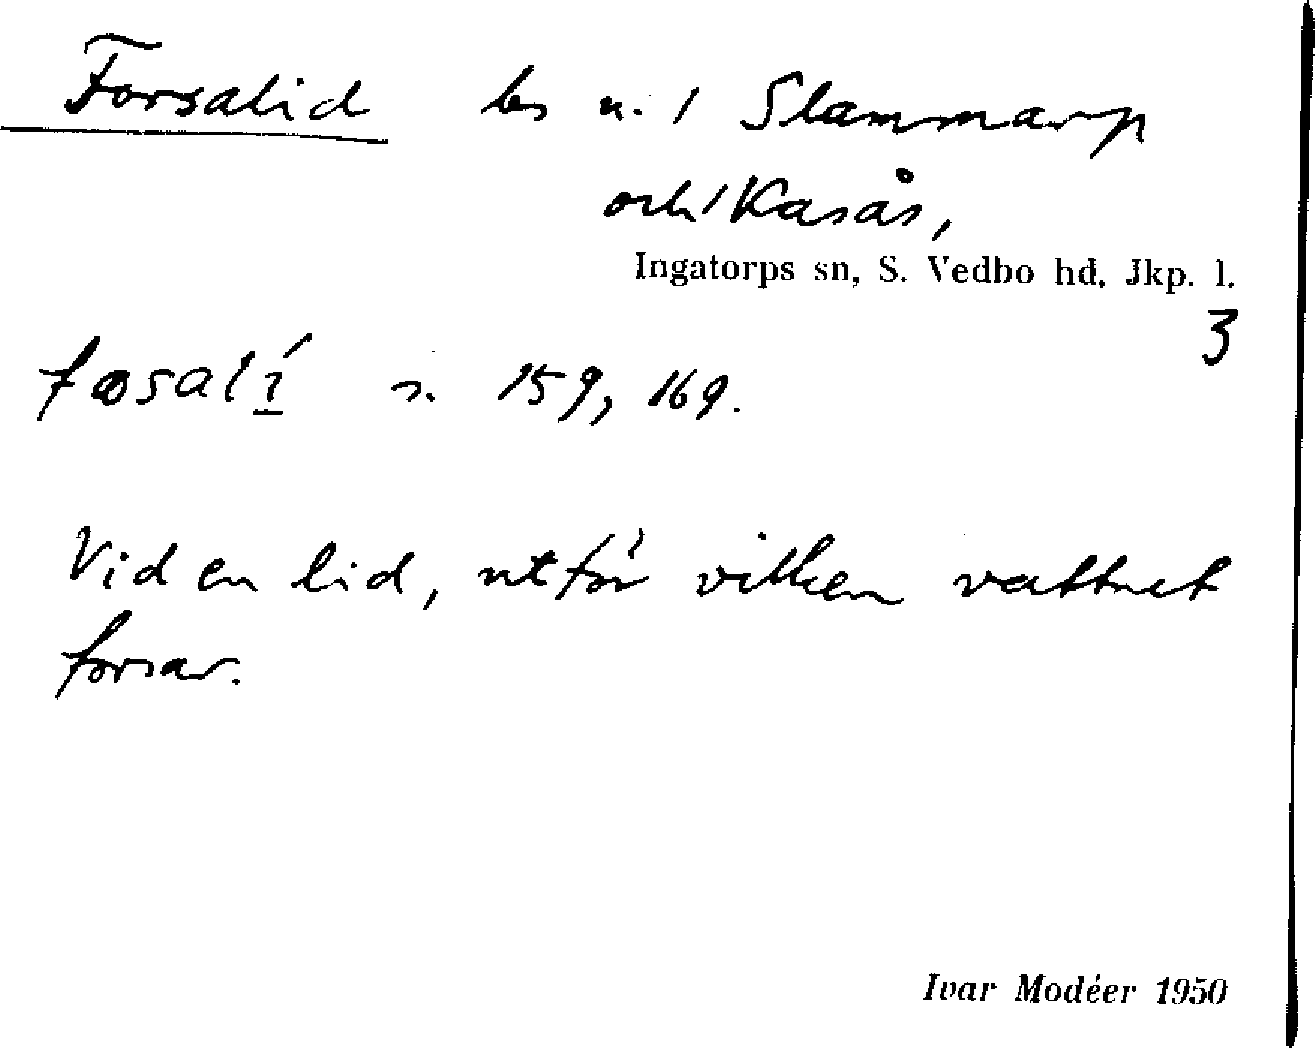 Forsalid les u. / Slammarp
och / Kasås,
Ingatorps sn, S. Vedbo hd, Jkp. l.
3
s. 159, 169.
Vid en lid, utför vilken vattnet
forsar.
Ivar Modéer 1950